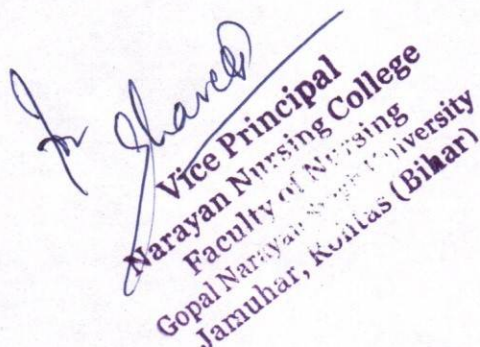 for
Vice Principal
Narayan Nursing College
Faculty of Nursing
Gopal Narayan Singh University
Jamuhar, Rohtas (Bihar)